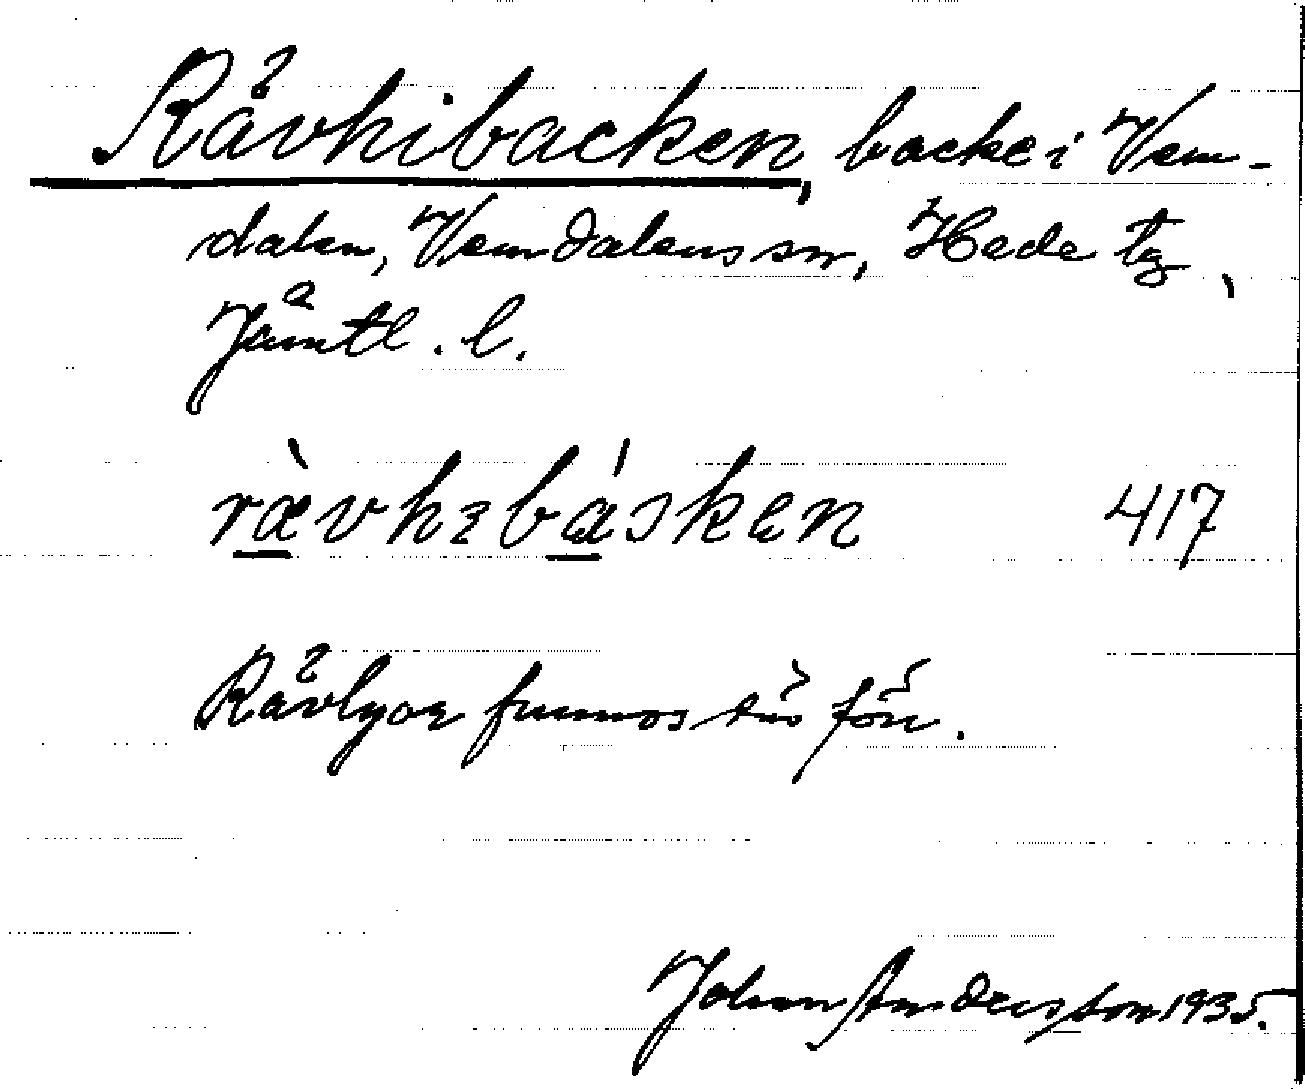 Rävhibacken, backe i Vem-
dalen, Vemdalens sn, Hede tg,
Jämtl. l.
rævhebasken 417
Rävlyor funnos här förr.
Johan Andersson 1935.